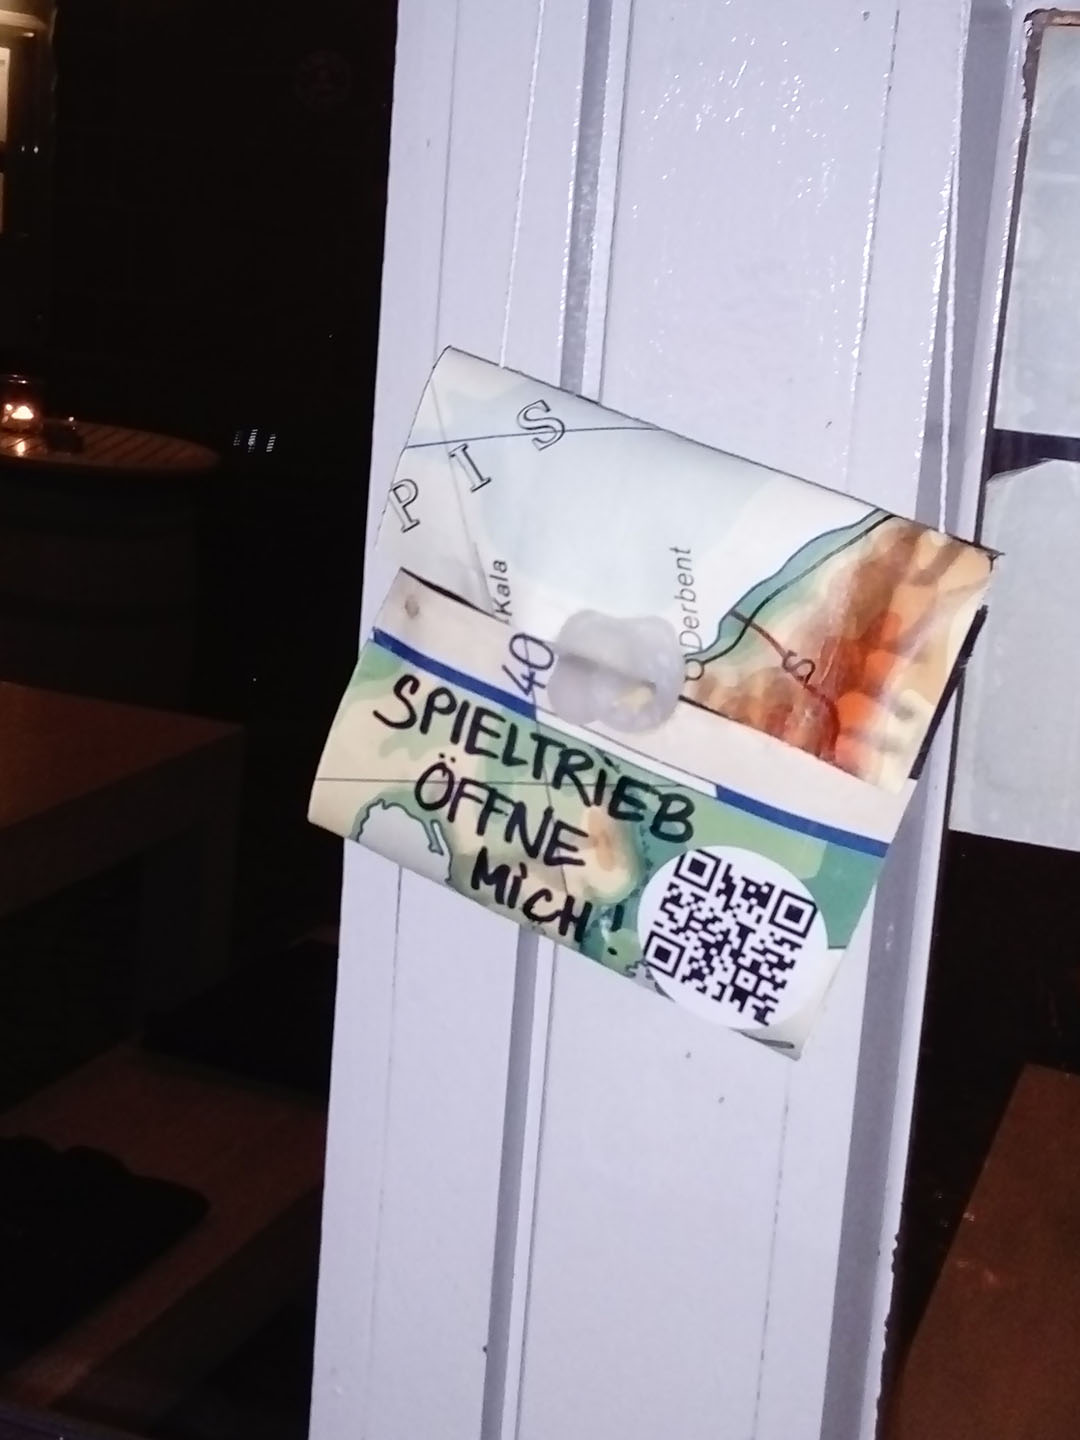 P I S
Kala
Derbent
40
S
SPIELTRIEB
ÖFFNE
MICH!